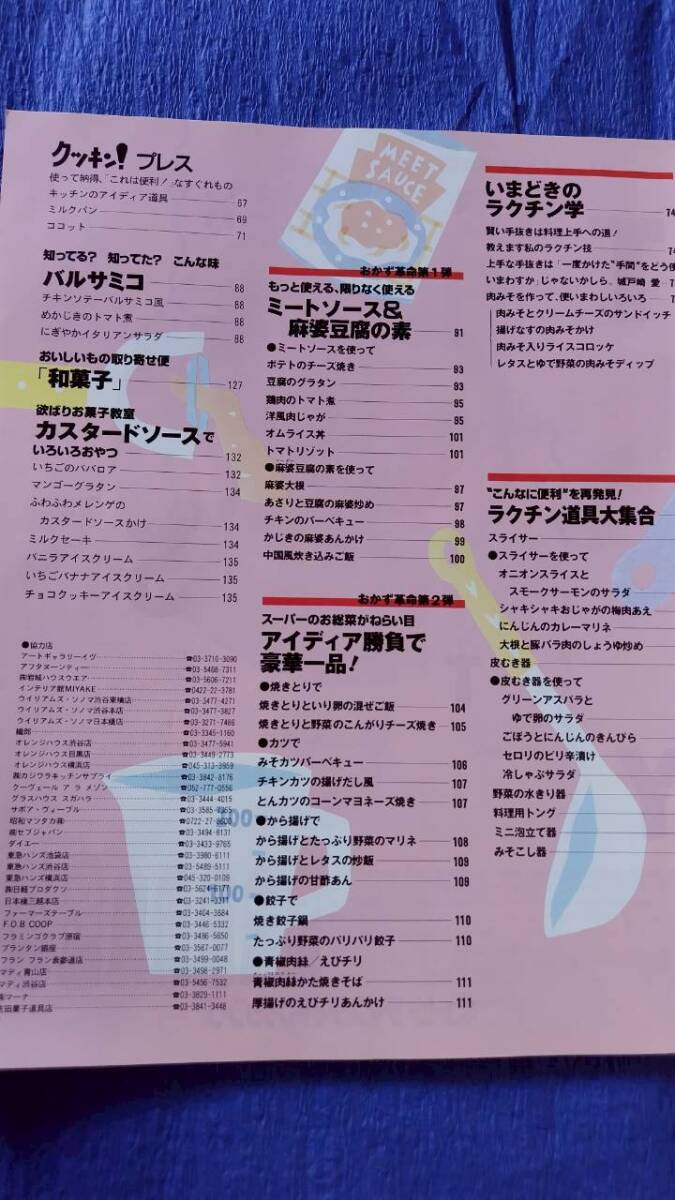 クッキン！プレス
使って納得、「これは便利！」なすぐれもの
キッチンのアイディア道具 67
ミルクパン 69
ココット 71
知ってる？ 知ってた？ こんな味
バルサミコ 88
チキンソテーバルサミコ風 88
めかじきのトマト煮 88
にぎやかイタリアンサラダ 88
おいしいもの取り寄せ便
「和菓子」 127
欲ばりお菓子教室
カスタードソースで
いろいろおやつ 132
いちごのババロア 132
マンゴーグラタン 134
ふわふわメレンゲの
カスタードソースかけ 134
ミルクセーキ 134
バニラアイスクリーム 135
いちごバナナアイスクリーム 135
チョコクッキーアイスクリーム 135
●協力店
アートギャラリーイヴ ☎03-3710-3090
アフタヌーンティー ☎03-5468-7311
㈱岩城ハウスウエア ☎03-5606-7211
インテリア館MIYAKE ☎0422-22-3781
ウイリアムズ・ソノマ渋谷東横店 ☎03-3477-4271
ウイリアムズ・ソノマ渋谷本店 ☎03-3477-3827
ウイリアムズ・ソノマ日本橋店 ☎03-3271-7486
織部 ☎03-3345-1160
オレンジハウス渋谷店 ☎03-3477-5941
オレンジハウス目黒店 ☎03-3449-2773
オレンジハウス横浜店 ☎045-313-3959
㈱カジワラキッチンサプライ ☎03-3842-8176
クーヴェール ア ラ メゾン ☎052-777-0556
グラスハウス スガハラ ☎03-3444-4015
サボア・ヴィーブル ☎03-3585-7365
昭和マンタカ㈱ ☎0722-27-8600
㈱セブジャパン ☎03-3494-8131
ダイエー ☎03-3433-9765
東急ハンズ池袋店 ☎03-3980-6111
東急ハンズ渋谷店 ☎03-5489-5111
東急ハンズ横浜店 ☎045-320-0109
㈱日軽プロダクツ ☎03-5624-6171
日本橋三越本店 ☎03-3241-3311
ファーマーズテーブル ☎03-3404-3684
F.O.B COOP ☎03-3446-5332
フラミンゴクラブ原宿 ☎03-3486-5650
プランタン銀座 ☎03-3567-0077
フラン フラン表参道店 ☎03-3499-0048
マディ青山店 ☎03-3498-2971
マディ渋谷店 ☎03-5456-7532
㈱マーナ ☎03-3829-1111
吉田菓子道具店 ☎03-3841-3448
MEET
SAUCE
おかず革命第1弾
もっと使える、限りなく使える
ミートソース＆
麻婆豆腐の素 91
●ミートソースを使って
ポテトのチーズ焼き 93
豆腐のグラタン 93
鶏肉のトマト煮 95
洋風肉じゃが 95
オムライス丼 101
トマトリゾット 101
●麻婆豆腐の素を使って
麻婆大根 97
あさりと豆腐の麻婆炒め 97
チキンのバーベキュー 98
かじきの麻婆あんかけ 99
中国風炊き込みご飯 100
おかず革命第2弾
スーパーのお総菜がねらい目
アイディア勝負で
豪華一品！
●焼きとりで
焼きとりといり卵の混ぜご飯 104
焼きとりと野菜のこんがりチーズ焼き 105
●カツで
みそカツバーベキュー 106
チキンカツの揚げだし風 107
とんカツのコーンマヨネーズ焼き 107
●から揚げで
から揚げとたっぷり野菜のマリネ 108
から揚げとレタスの炒飯 109
から揚げの甘酢あん 109
●餃子で
焼き餃子鍋 110
たっぷり野菜のパリパリ餃子 110
●青椒肉絲／えびチリ
青椒肉絲かた焼きそば 111
厚揚げのえびチリあんかけ 111
いまどきの
ラクチン学 74
賢い手抜きは料理上手への道！
教えます私のラクチン技
上手な手抜きは「一度かけた“手間”をどう使
いまわすか」じゃないかしら。城戸崎 愛
肉みそを作って、使いまわしいろいろ
肉みそとクリームチーズのサンドイッチ
揚げなすの肉みそかけ
肉みそ入りライスコロッケ
レタスとゆで野菜の肉みそディップ
“こんなに便利”を再発見！
ラクチン道具大集合
スライサー
●スライサーを使って
オニオンスライスと
スモークサーモンのサラダ
シャキシャキおじゃがの梅肉あえ
にんじんのカレーマリネ
大根と豚バラ肉のしょうゆ炒め
皮むき器
●皮むき器を使って
グリーンアスパラと
ゆで卵のサラダ
ごぼうとにんじんのきんぴら
セロリのピリ辛漬け
冷しゃぶサラダ
野菜の水きり器
料理用トング
ミニ泡立て器
みそこし器